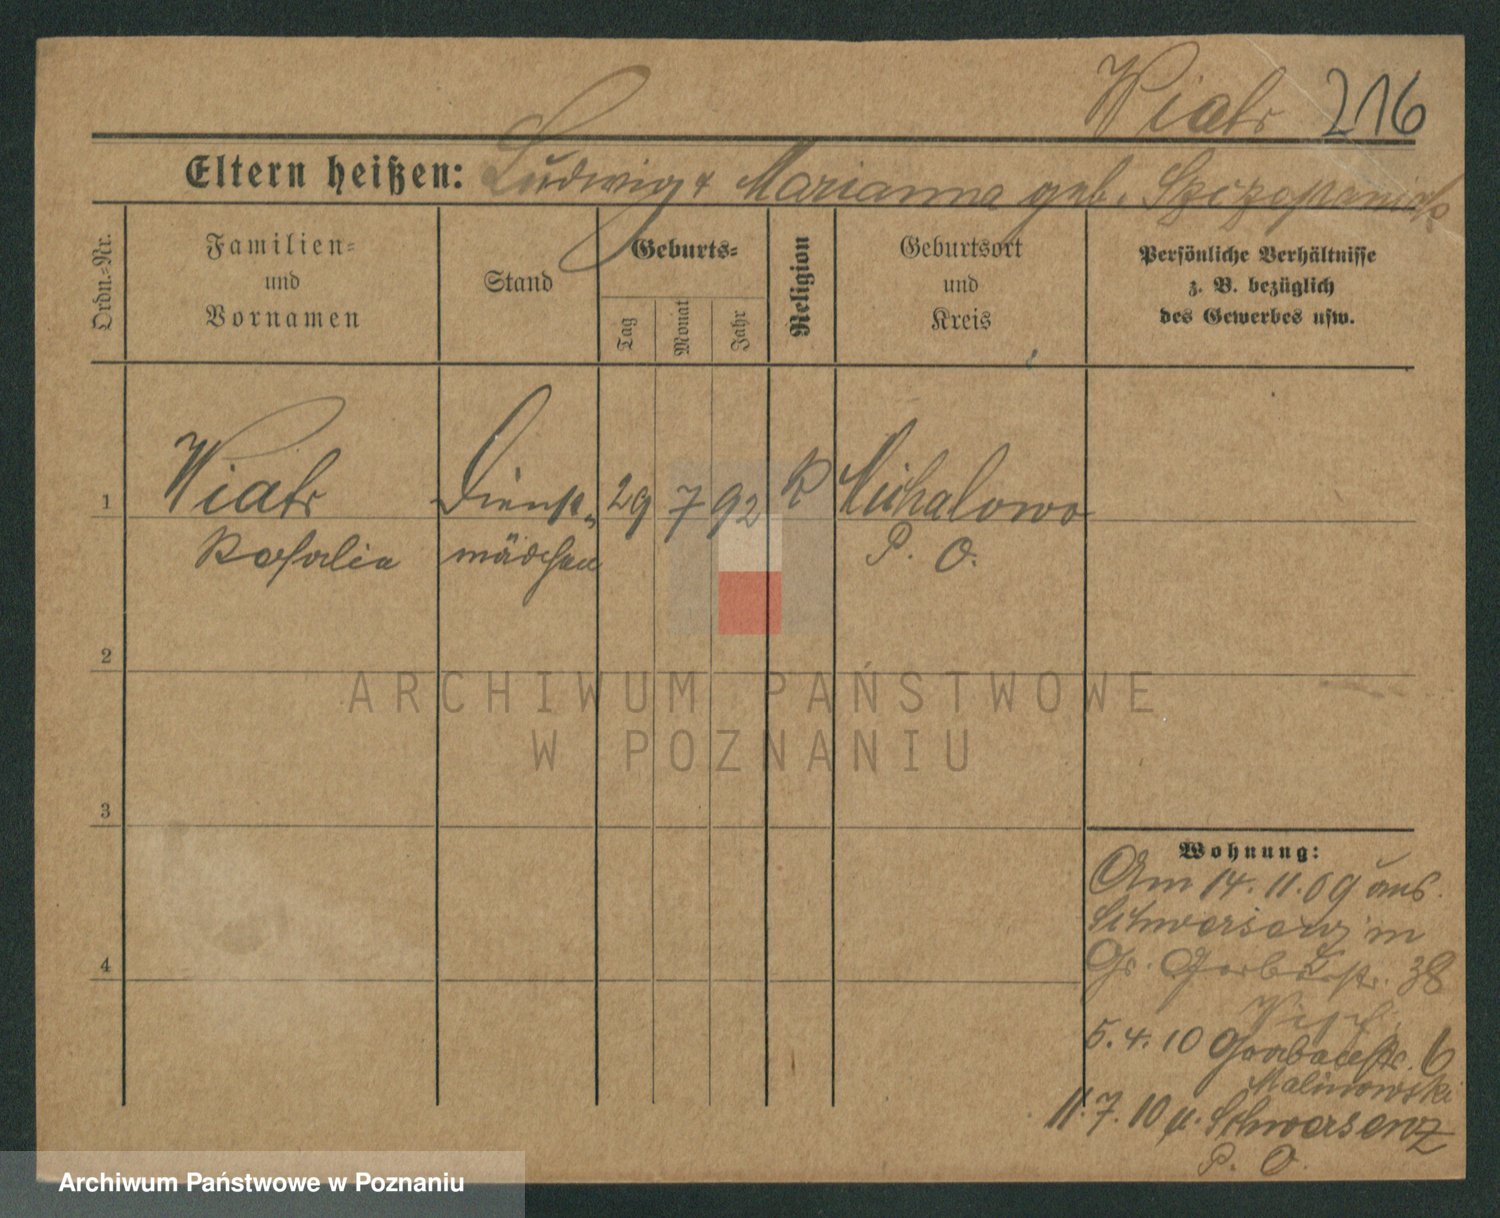 Wiatr 216
Eltern heißen: Ludwig & Marianna geb. Szczepaniak
Ordn.-Nr.
Familien-
und
Vornamen
Stand
Geburts-
Tag
Monat
Jahr
Religion
Geburtsort
und
Kreis
Persönliche Verhältnisse
z. B. bezüglich
des Gewerbes usw.
1 Wiatr Dienst- 29 7 92 K Michalowo
Rosalie mädchen P. O.
2
ARCHIWUM PAŃSTWOWE
W POZNANIU
3
4
Wohnung:
Am 14. 11. 09 aus
Schwersenz in
Gr. Gerberstr. 38
5. 4. 10 6
Malinowski
11. 7. 10 n. Schwersenz
P. O.
Archiwum Państwowe w Poznaniu